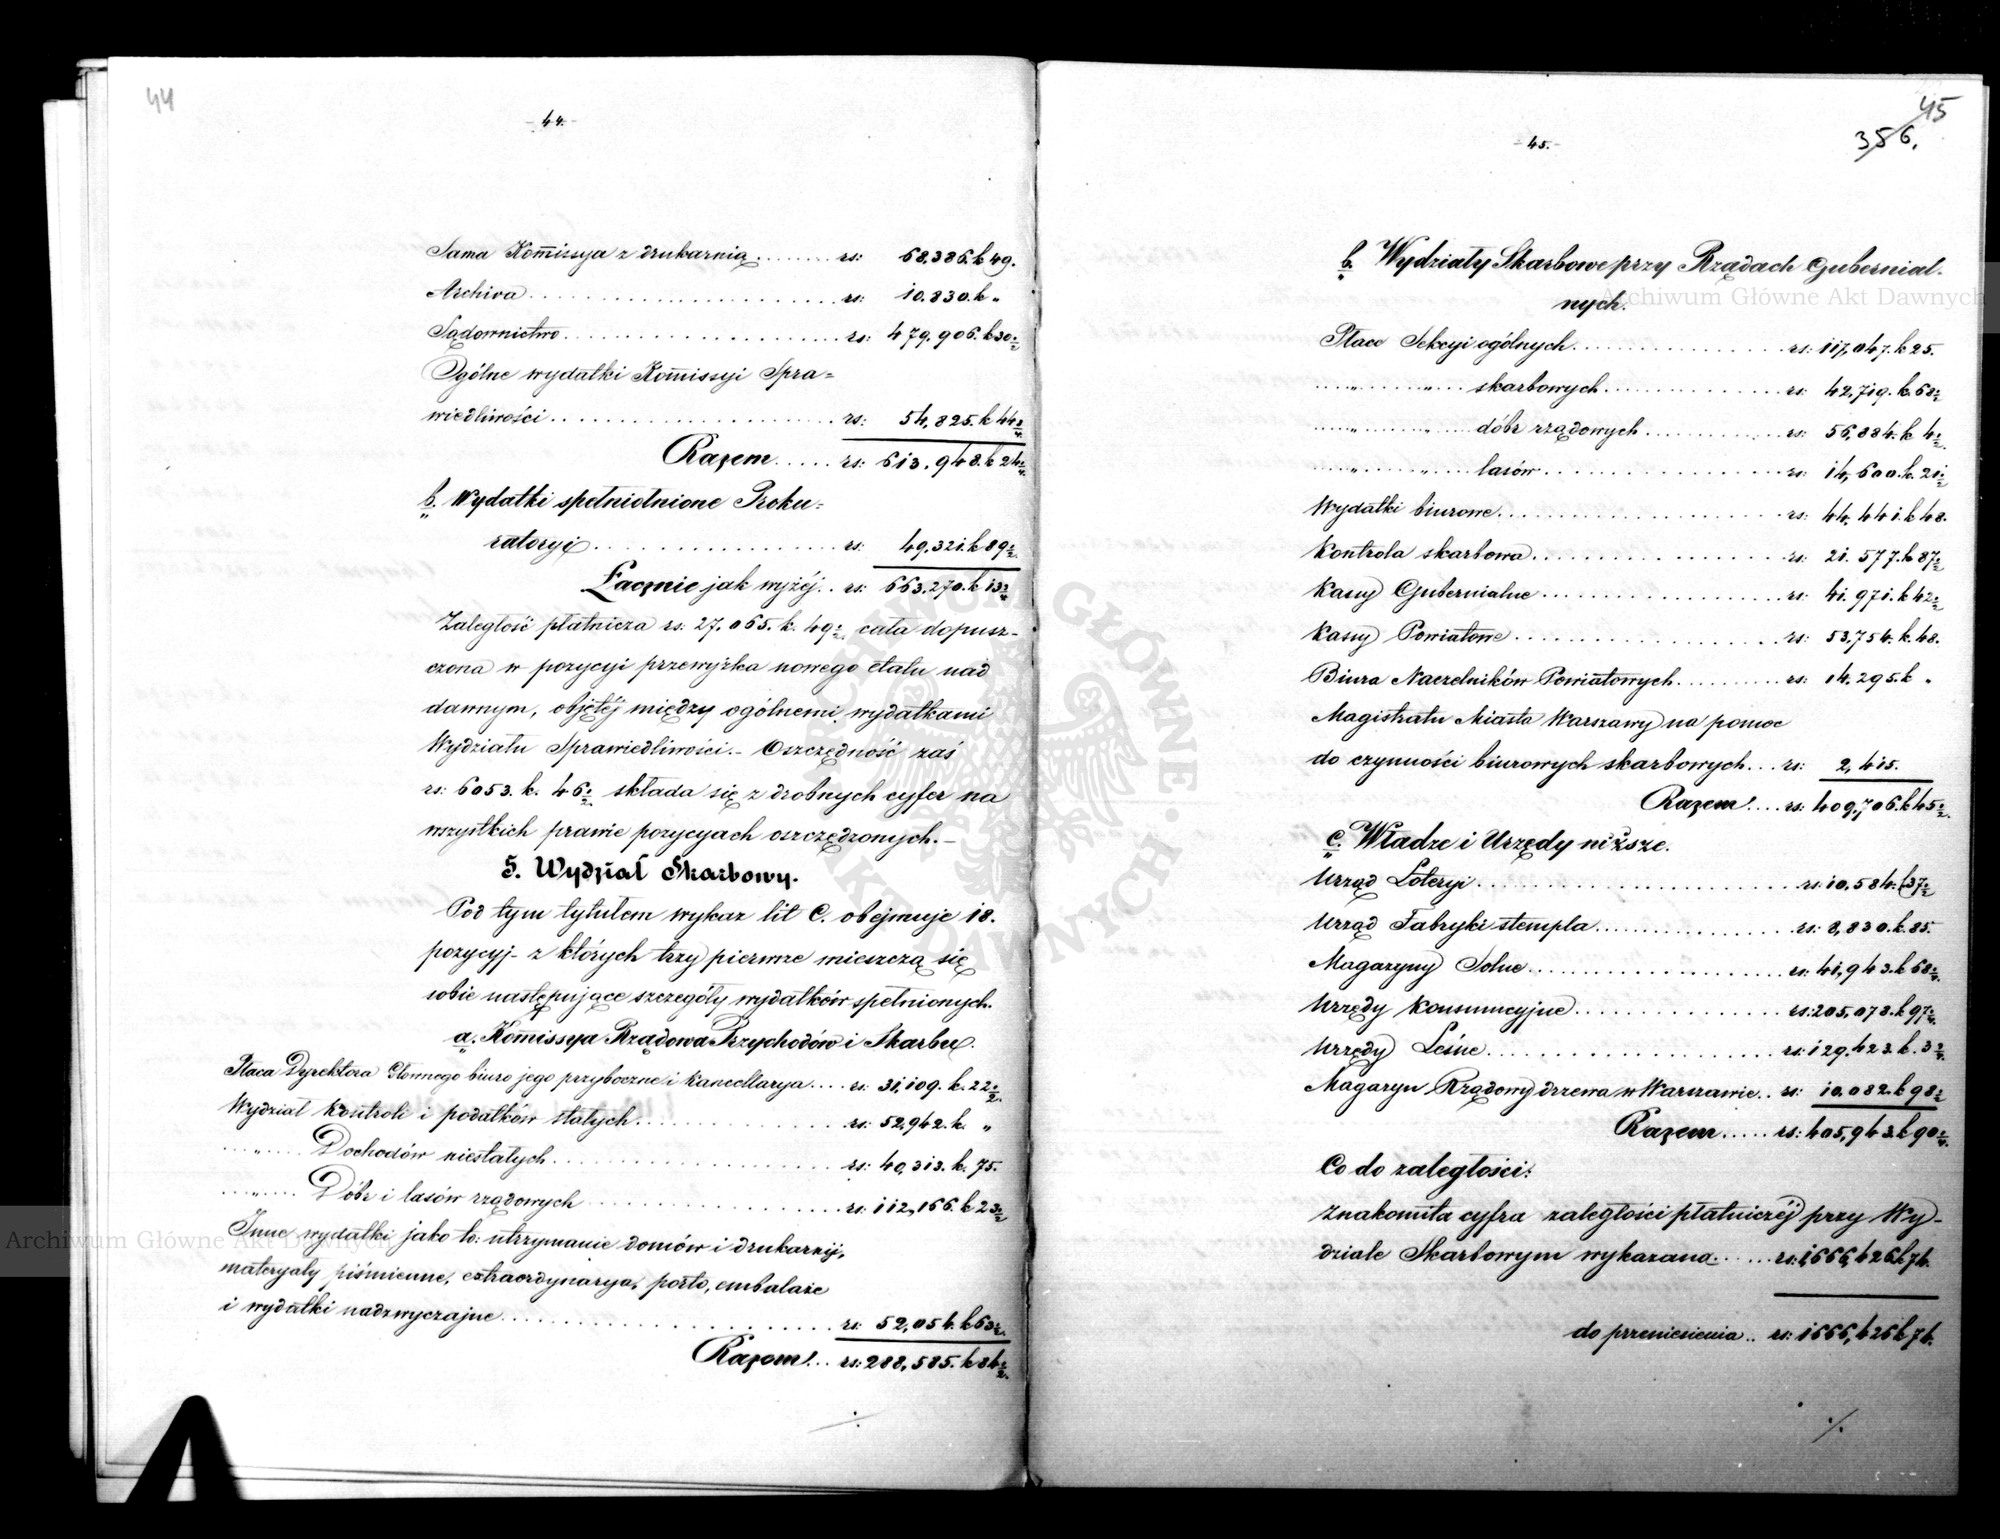 44
- 44. -
Sama Komissya z drukarnią ........ rs: 68,386. k 49.
Archiva ........ rs: 10.830. k „
Sądownictwo ........ rs: 479,906. k 30½
Ogólne wydatki Komissyi Spra=
wiedliwości ........ rs: 54,825. k 44¾
Razem ..... rs: 613.948. k 24¼
b. Wydatki spełniolnione Proku=
ratoryi ........ rs: 49,321. k 89½
Łącznie jak wyżéj .. rs: 663,270. k 13¾
Zaległość płatnicza rs: 27,065. k. 49½ cała dopusz-
czona w pozycyi przewyżka nowego etatu nad
dawnym, objętéj między ogólnemi wydatkami
Wydziału Sprawiedliwości. - Oszczędność zaś
rs: 6053. k. 46½ składa się z drobnych cyfer na
wszystkich prawie pozycyach oszczędzonych. -
5. Wydział Skarbowy.
Pod tym tytułem wykaz lit C. obejmuje 18.
pozycyj - z których trzy pierwsze mieszczą się
sobie następujące szczegóły wydatków spełnionych.
a. Komissya Rządowa Przychodów i Skarbu.
Płaca Dyrektora Głównego biuro jego przyboczne i Kancellarya .... rs: 31,109. k. 22½
Wydział Kontroli i podatków stałych ........ rs: 52,942. k. „
.... „ .... Dochodów niestałych ........ rs: 40,313. k. 75.
.... „ .... Dóbr i lasów rządowych ........ rs: 112,166. k 23½
Inne wydatki jako to: utrzymanie domów i drukarnij,
materyały piśmienne, extraordynarya, porto, embalaże
i wydatki nadzwyczajne ........ rs: 52,054. k 63½
Razem! .. rs: 288,585. k 84½
./.
45
356.
- 45. -
b. Wydziały Skarbowe przy Rządach Gubernial-
nych.
Płace Sekcyi ogólnych ........ rs: 117,047. k 25.
.... „ .... „ .... skarbowych ........ rs: 42,719. k. 68½
.... „ .... „ .... dóbr rządowych ........ rs: 56,884. k 4½
.... „ .... „ .... lasów ........ rs: 14,600. k. 21½
Wydatki biurowe ........ rs: 44,441. k 48.
Kontrola skarbowa ........ rs: 21.577. k 87½
Kassy Gubernialne ........ rs: 41.971. k 42½
Kassy Powiatowe ........ rs: 53,754. k. 48.
Biura Naczelników Powiatowych ........ rs: 14.295. k „
Magistratu Miasta Warszawy na pomoc
do czynności biurowych skarbowych ... rs: 2,415.
Razem! .... rs: 409,706. k 45½
c. Władze i Urzędy niższe.
Urząd Loteryi ........ rs: 10.584. k 37½
Urząd Fabryki stempla ........ rs: 8,830. k. 85.
Magazyny Solne ........ rs: 41,943. k 68¼
Urzędy Konsumcyjne ........ rs: 205,078. k 97¾
Urzędy Leśne ........ rs: 129,423. k. 3¾
Magazyn Rządowy drzewa w Warszawie .. rs: 10.082. k 98½
Razem ..... rs: 405,943. k 90¼
Co do zaległości:
Znakomita cyfra zaległości płatniczéj przy Wy-
dziale Skarbowym wykazana ..... rs: 1,666,426. k 74.
do przeniesienia .. rs: 1666,426 k 74.
./.
Archiwum Główne Akt Dawnych
Archiwum Główne Akt Dawnych
ARCHIWUM GŁÓWNE AKT DAWNYCH